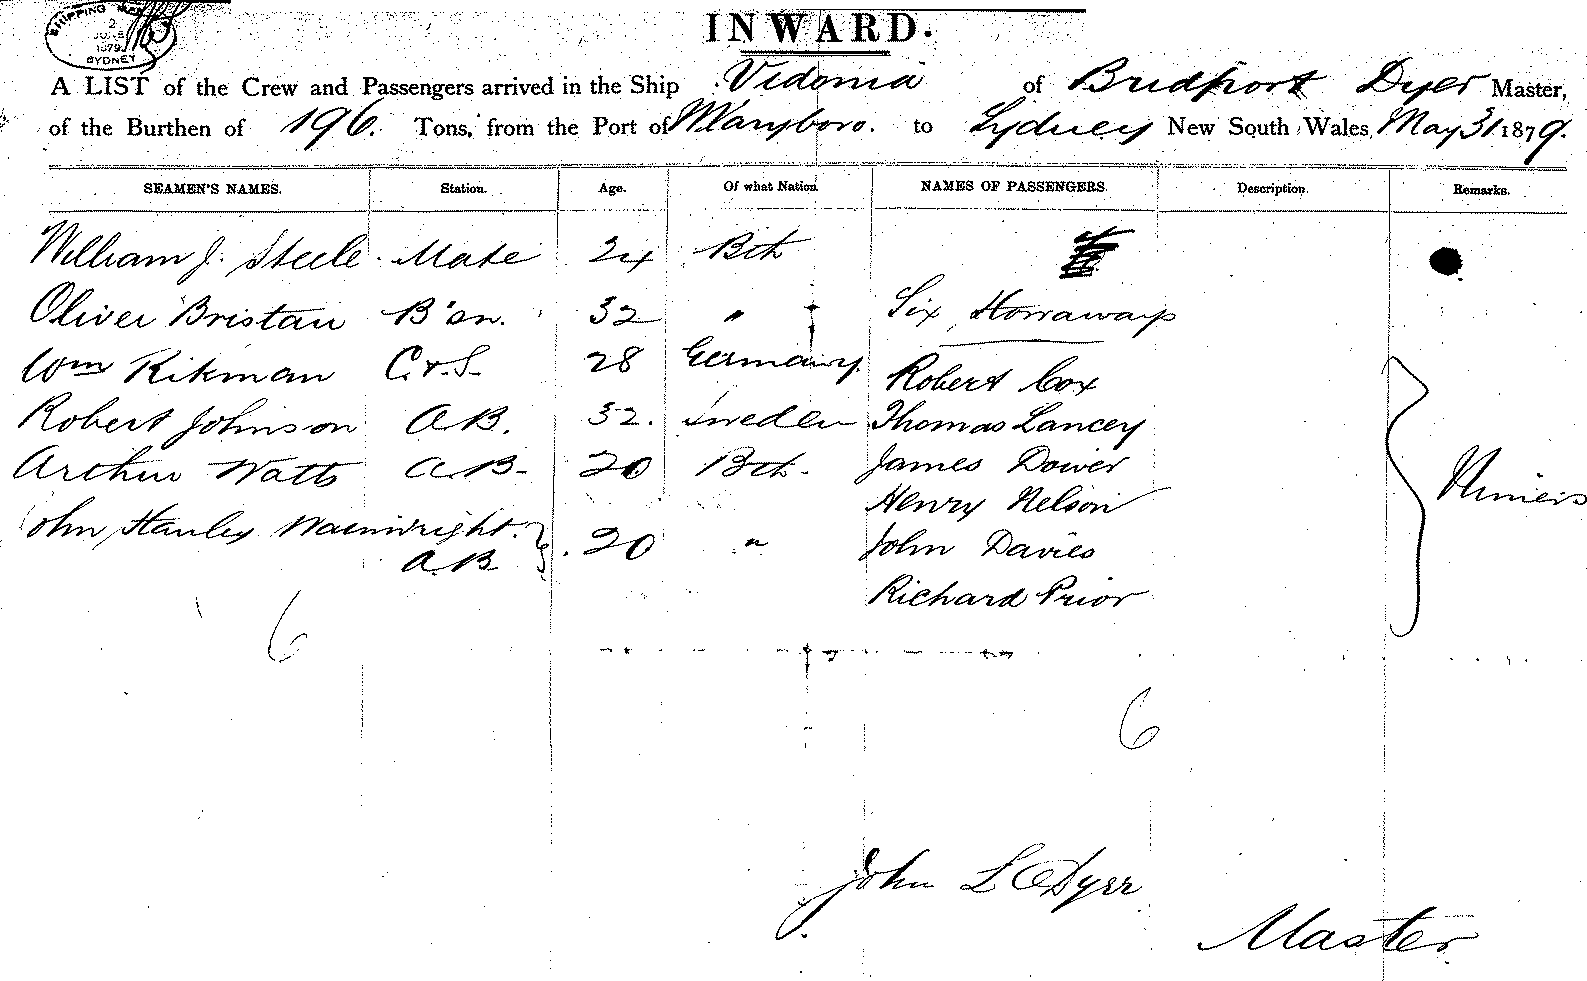 SHIPPING MAS
2
JUNE
1879
SYDNEY
INWARD.
A LIST of the Crew and Passengers arrived in the Ship Vidonia of Bridport Dyer Master,
of the Burthen of 196. Tons, from the Port of Maryboro. to Sydney New South Wales, May 31 1879.
SEAMEN'S NAMES. Station. Age. Of what Nation. NAMES OF PASSENGERS. Description. Remarks.
William J. Steele Mate 24 Bth
Oliver Bristau B'sn. 32 " Six
Wm Rikman C. & S. 28 Germany Robert Cox
Robert Johnson A B. 32. Sweden Thomas Lancey
Arthur Watts A. B- 20 Bth. James Dower
Henry Nelson Miners
John Stanley Wainwright. A. B 20 " John Davies
Richard Prior
6
6
John L Dyer
Master